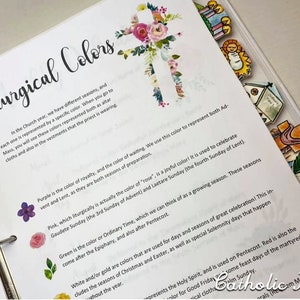 urgical Colors
In the Church year, we have different seasons, and
each one is represented by a specific color. When you go to
Mass, you will see these colors represented both in altar
cloths and also in the vestments that the priest is wearing.
Purple is the color of royalty, and the color of waiting. We use this color to represent both Ad-
vent and Lent, as they are both seasons of preparation.
Pink, which liturgically is actually the color of "rose", is a joyful color! It is used to celebrate
Gaudete Sunday (the 3rd Sunday of Advent) and Laetare Sunday (the fourth Sunday of Lent).
Green is the color of Ordinary Time, which we can think of as a growing season. These seasons
come after the Epiphany, and also after Pentecost.
White and/or gold are colors that are used for days and seasons of great celebration! This in-
cludes the seasons of Christmas and Easter, as well as special Solemnities that happen
throughout the year.
represents the Holy Spirit, and is used on Pentecost. Red is also the
Good Friday
Catholic